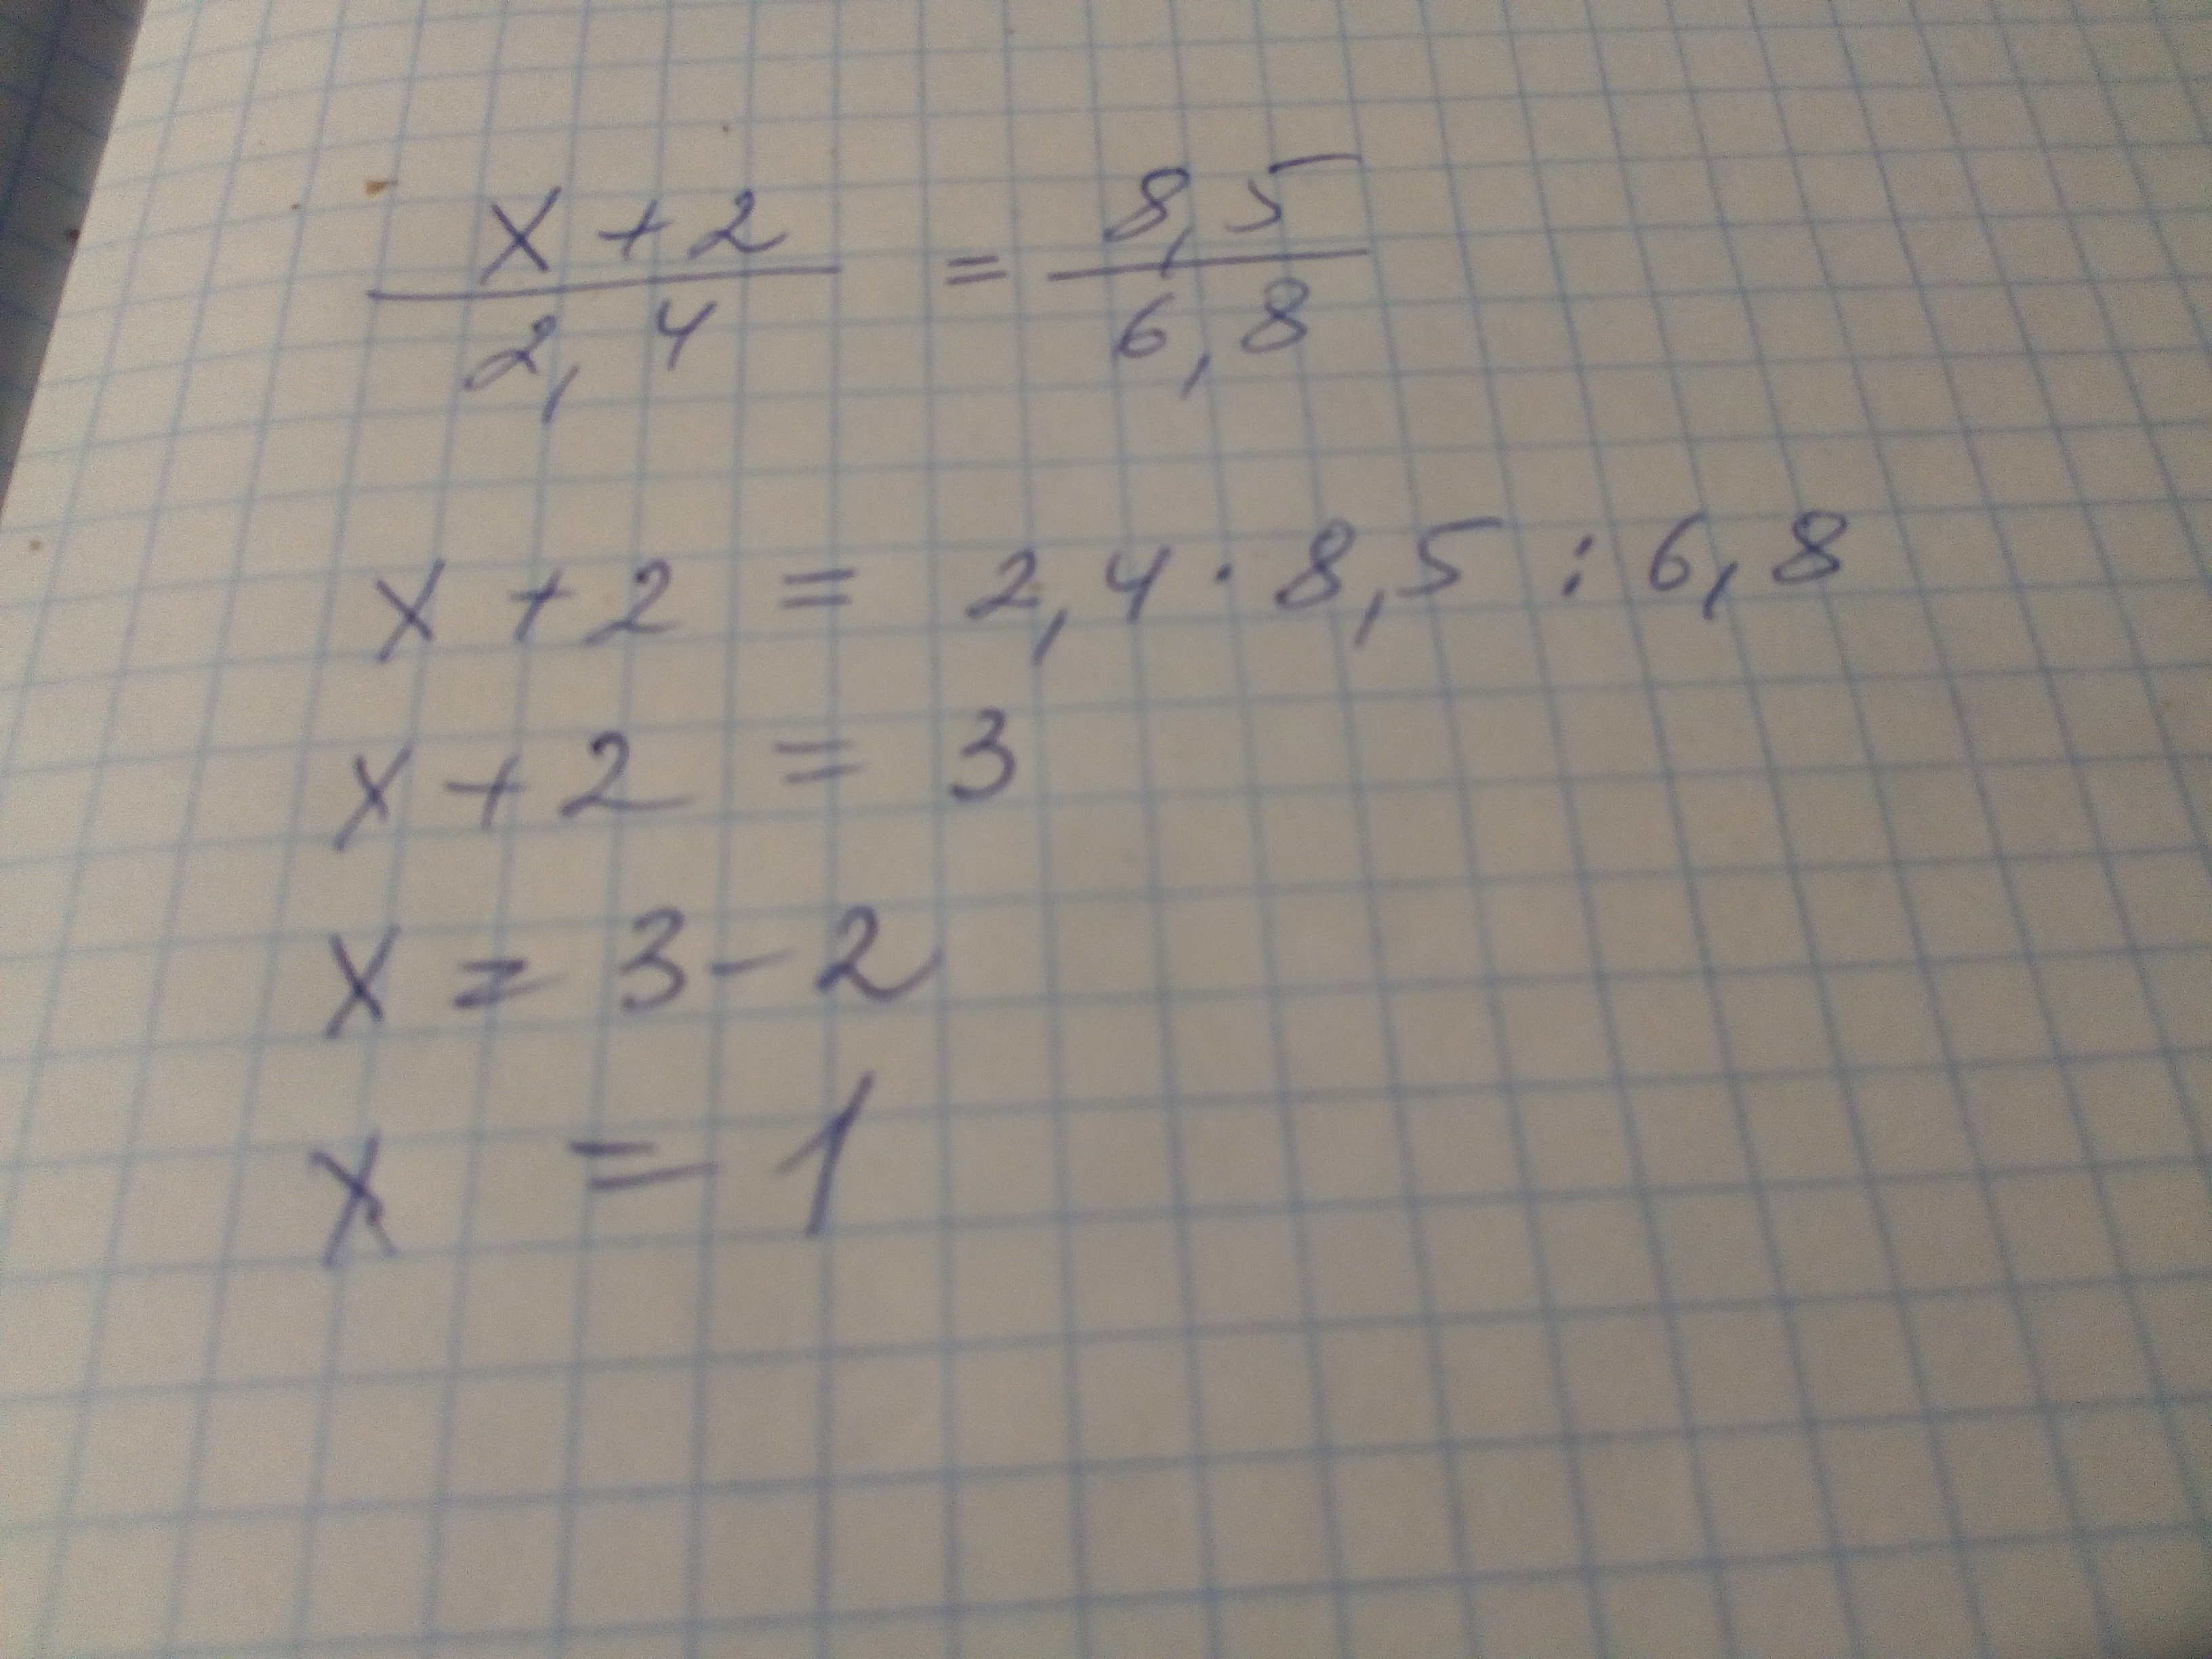 x + 2 / 2,4 = 8,5 / 6,8
x + 2 = 2,4 · 8,5 : 6,8
x + 2 = 3
x = 3 - 2
x = 1